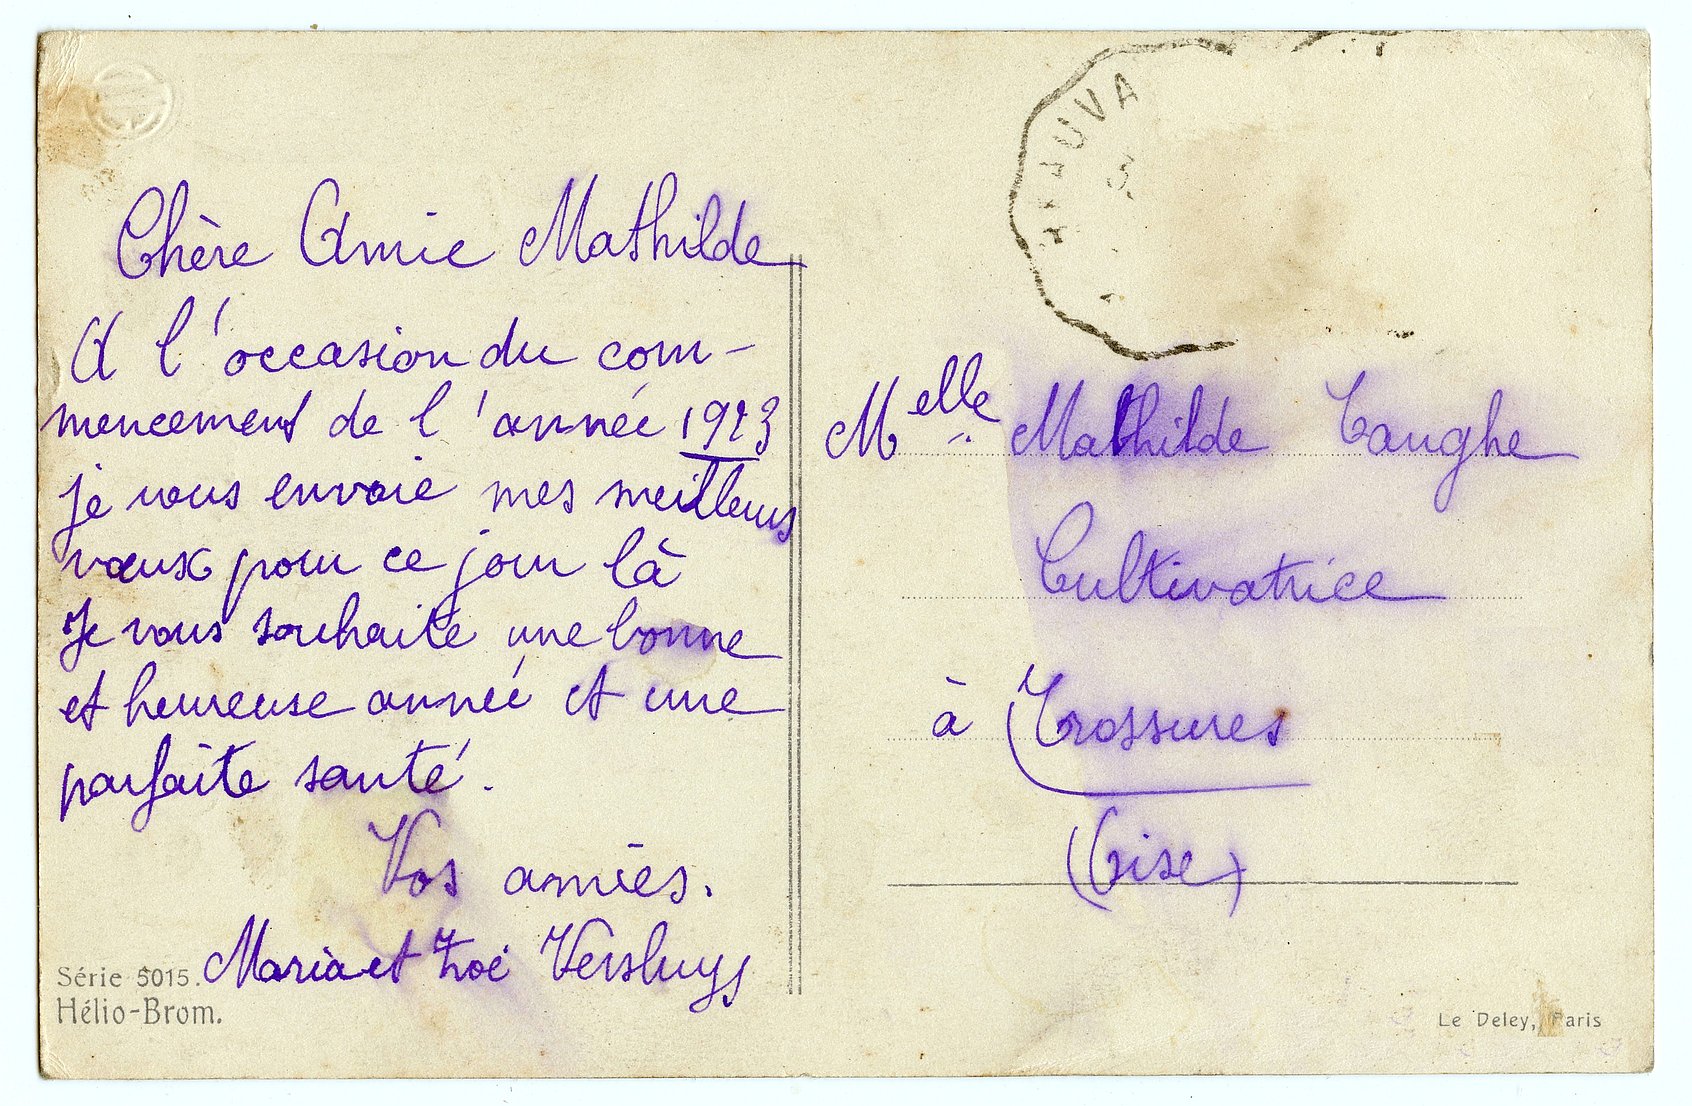 Chère Amie Mathilde
A l'occasion du com-
mencement de l'année 1923
je vous envoie mes meilleurs
vœux pour ce jour là
Je vous souhaite une bonne
et heureuse année et une
parfaite santé.
Vos amies.
Maria et Zoé Versluys
Série 5015.
Hélio-Brom.
AUVA
Melle Mathilde Caughe
Cultivatrice
à Trossures
(Oise)
Le Deley, Paris